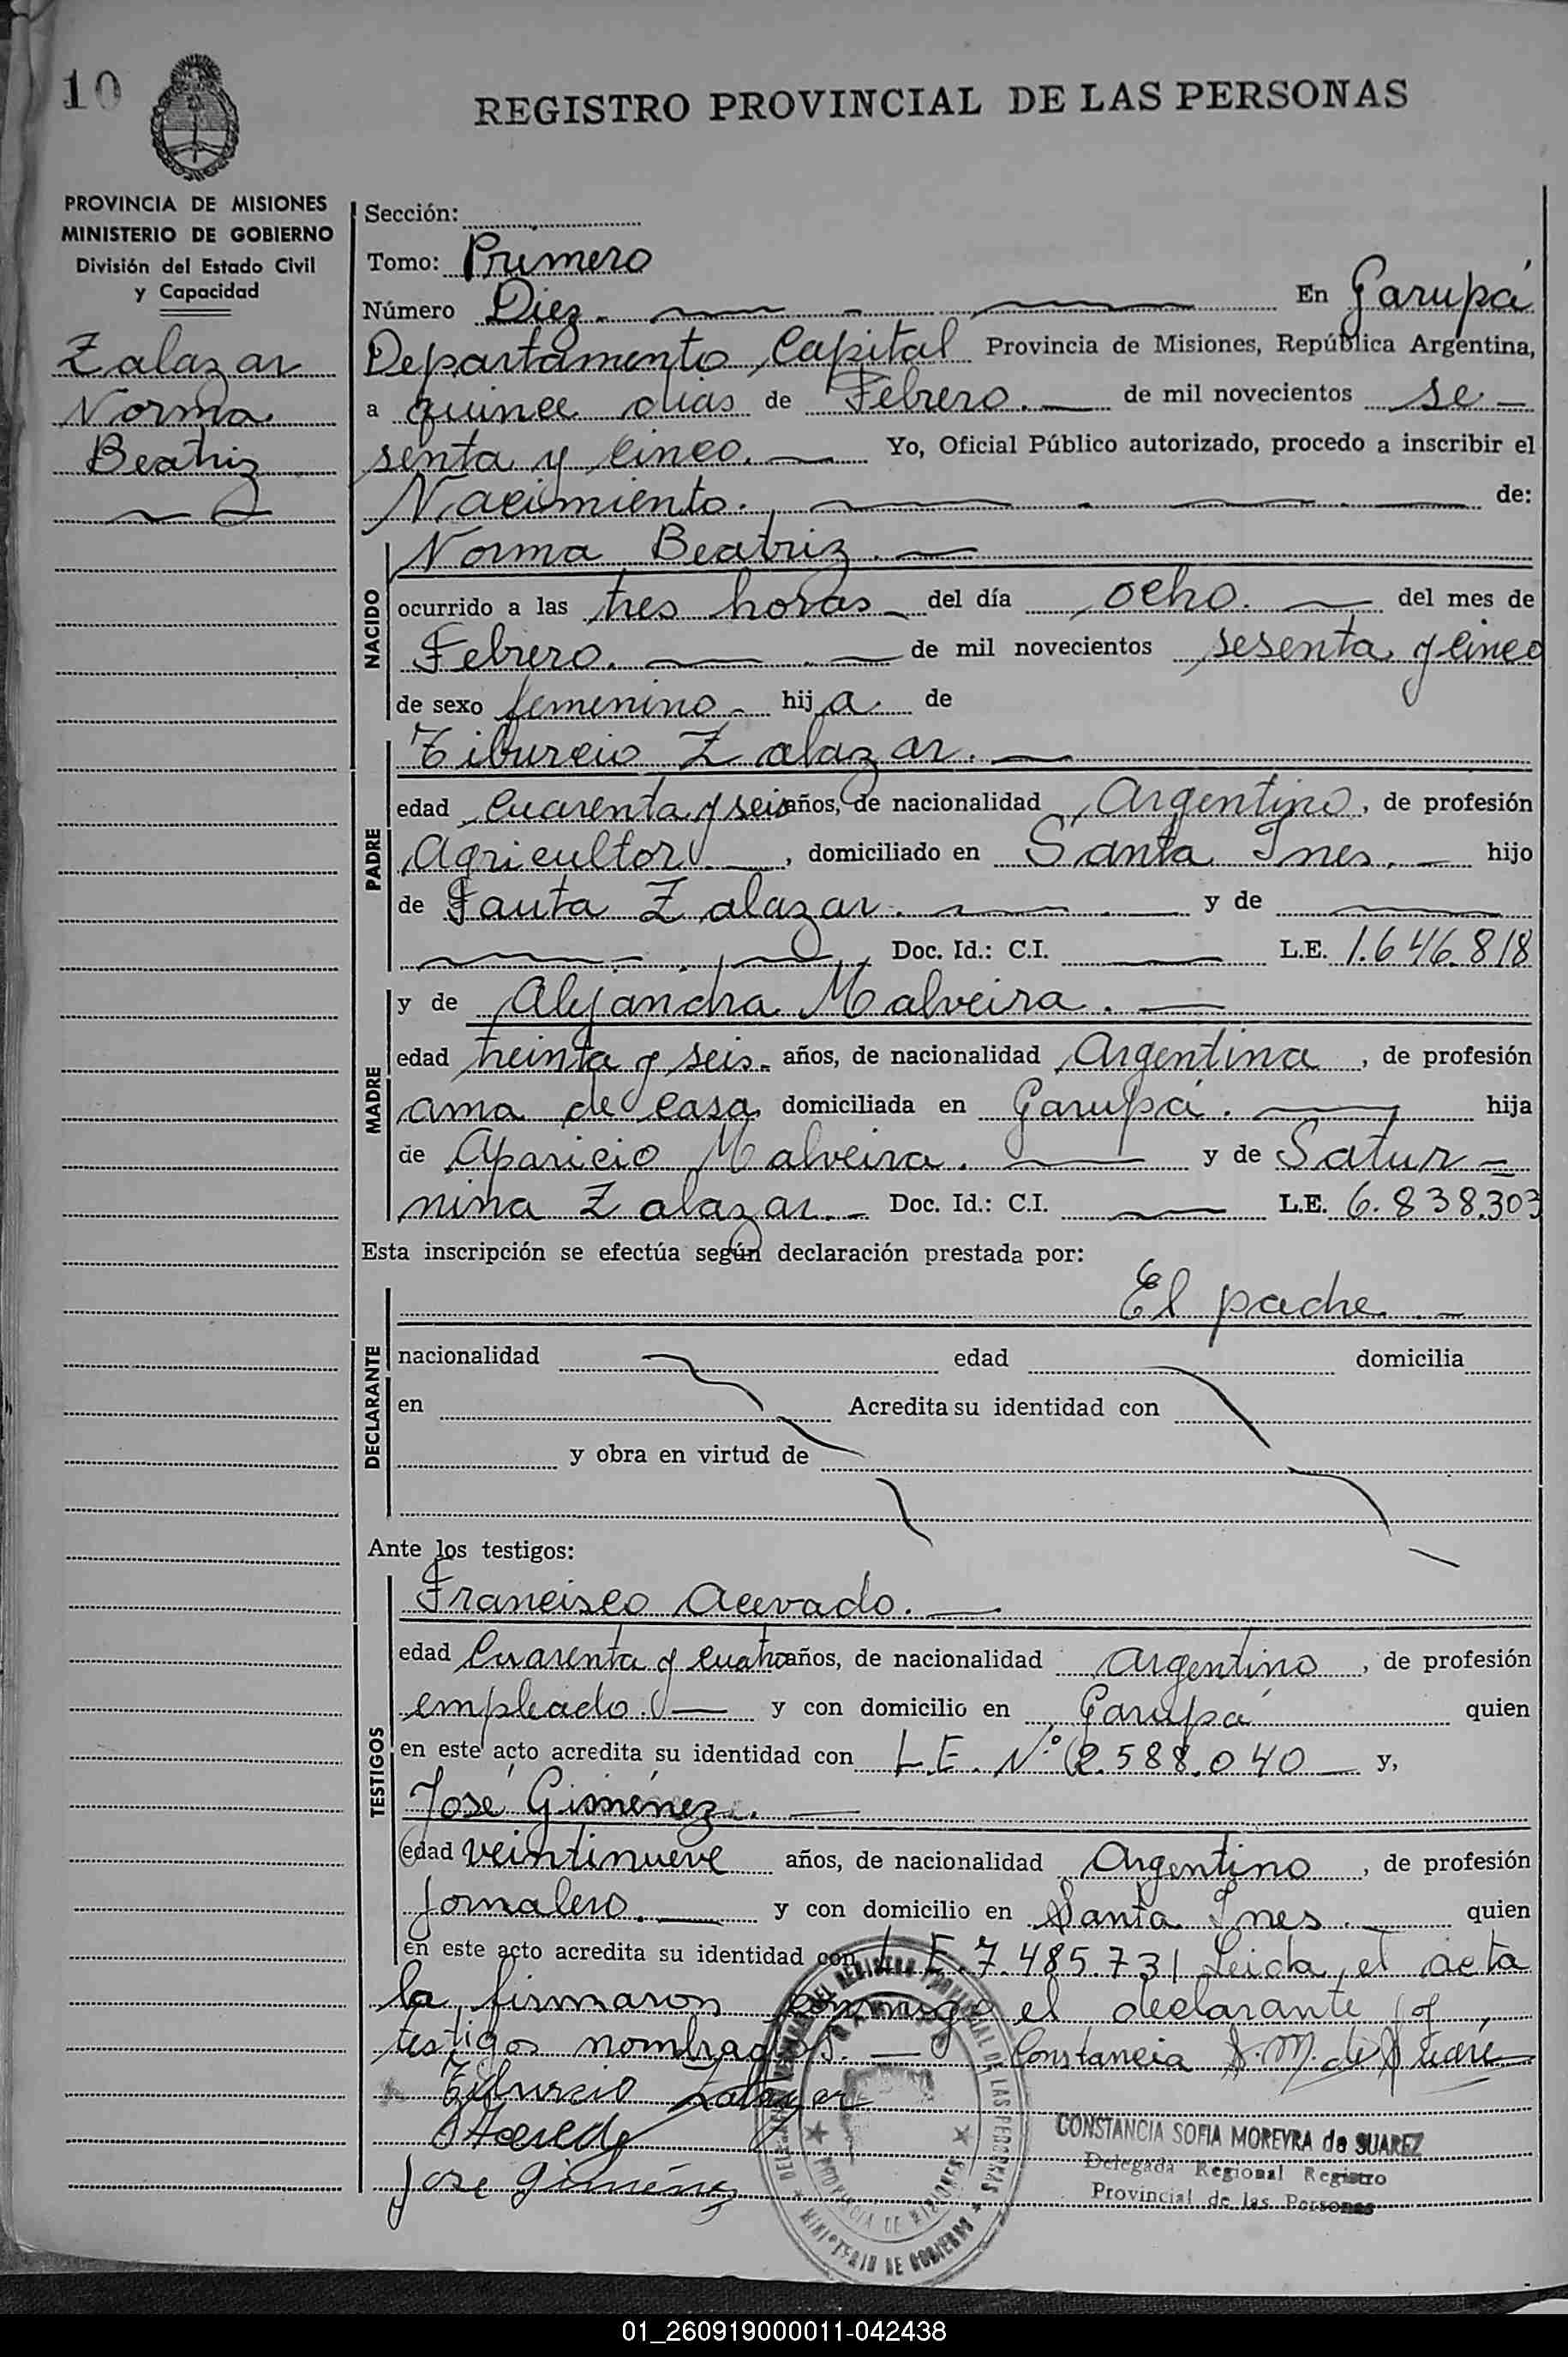 10
REGISTRO PROVINCIAL DE LAS PERSONAS
PROVINCIA DE MISIONES
MINISTERIO DE GOBIERNO
División del Estado Civil
y Capacidad
Zalazar
Norma
Beatriz
Sección:
Tomo: Primero
Número Diez. En Garupá
Departamento Capital Provincia de Misiones, República Argentina,
a quince dias de Febrero. de mil novecientos se-
senta y cinco. Yo, Oficial Público autorizado, procedo a inscribir el
Nacimiento. de:
NACIDO
Norma Beatriz.
ocurrido a las tres horas del día ocho. del mes de
Febrero. de mil novecientos sesenta y cinco
de sexo femenino hija de
PADRE
Tiburcio Zalazar.
edad cuarenta y seis años, de nacionalidad Argentino, de profesión
Agricultor, domiciliado en Santa Ines. hijo
de Fauta Zalazar. y de
Doc. Id.: C.I. L.E. 1.646.818
MADRE
y de Alejandra Malveira.
edad treinta y seis. años, de nacionalidad Argentina, de profesión
ama de casa domiciliada en Garupá. hija
de Aparicio Malveira. y de Satur=
nina Zalazar. Doc. Id.: C.I. L.E. 6.838.303
Esta inscripción se efectúa según declaración prestada por:
DECLARANTE
El padre.
nacionalidad edad domicilia
en Acredita su identidad con
y obra en virtud de
Ante los testigos:
TESTIGOS
Francisco Acevado.
edad Cuarenta y cuatro años, de nacionalidad Argentino, de profesión
empleado. y con domicilio en Garupá quien
en este acto acredita su identidad con L.E. Nº 2.588.040 y,
José Giménez.
edad veintinueve años, de nacionalidad Argentino, de profesión
Jornalero. y con domicilio en Santa Ines. quien
en este acto acredita su identidad con L.E. 7.485.731 Leida el acta
la firmaron conmigo el declarante y
testigos nombrados. Constancia S. M. de Suaré
Tiburcio Zalazar
CONSTANCIA SOFIA MOREYRA de SUAREZ
Delegada Regional Registro
Provincial de las Personas
Jose Giménez
PROVINCIA DE MISIONES
MINISTERIO DE GOBIERNO
01_260919000011-042438